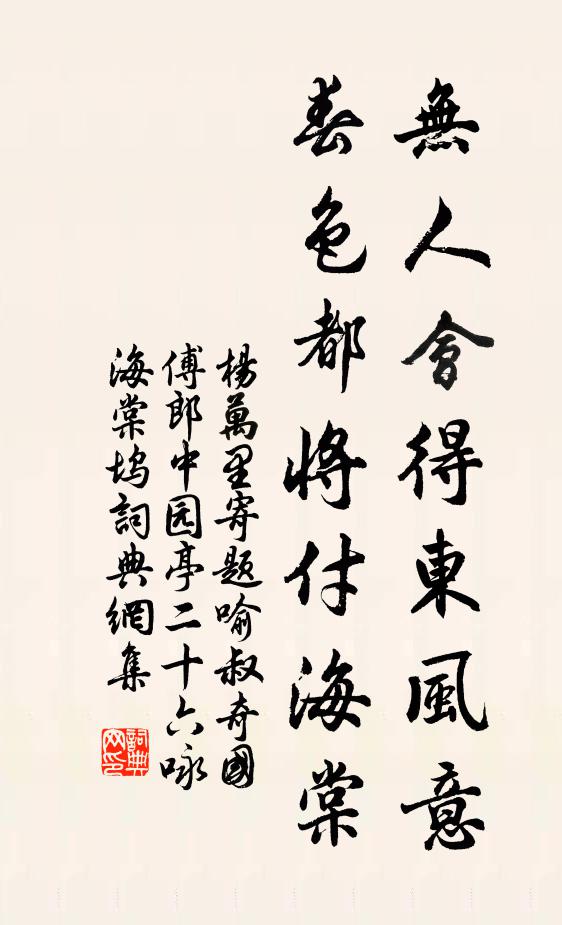 無人會得東風意
春色都將付海棠
楊萬里寄题喻叔奇國
傅郎中园亭二十六咏
海棠坞詞典網集
詞典网印